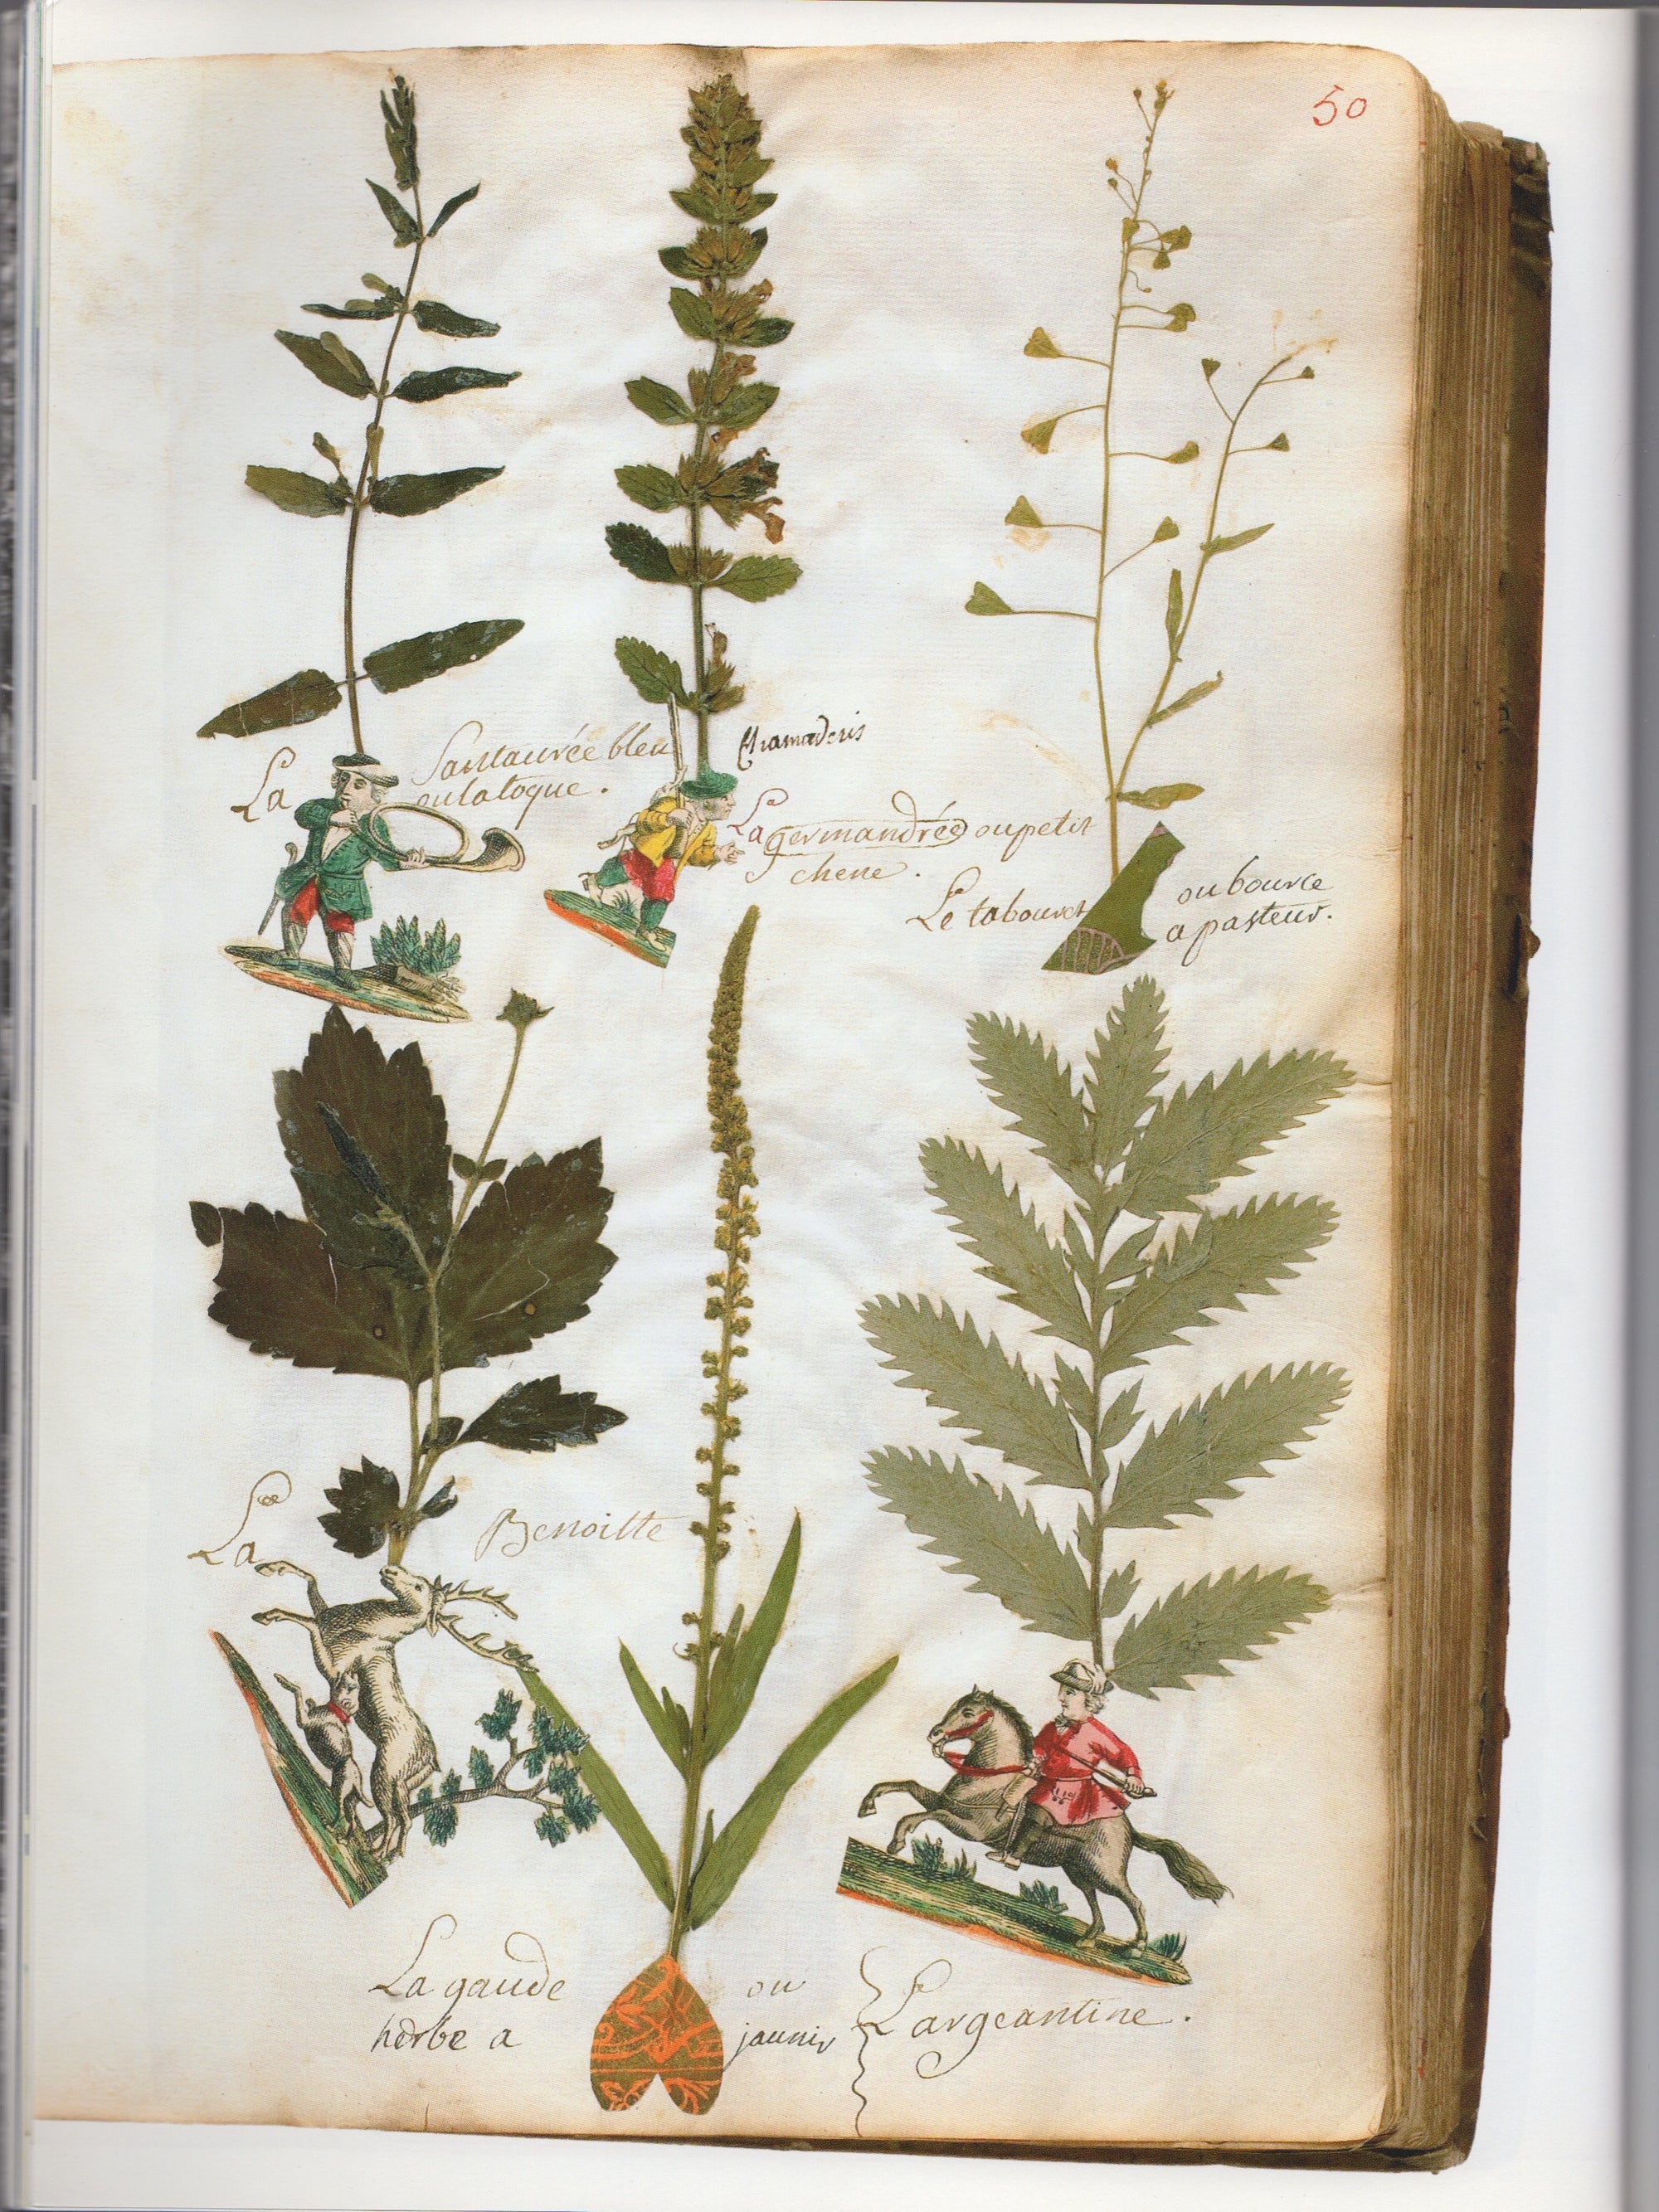 50
La Santaurée bleu
ou la toque.
Chamaderis
La germandrée ou petit
chene.
Le tabouret ou bource
a pasteur.
La Benoitte
La gaude ou
herbe a jaunir
Largeantine.